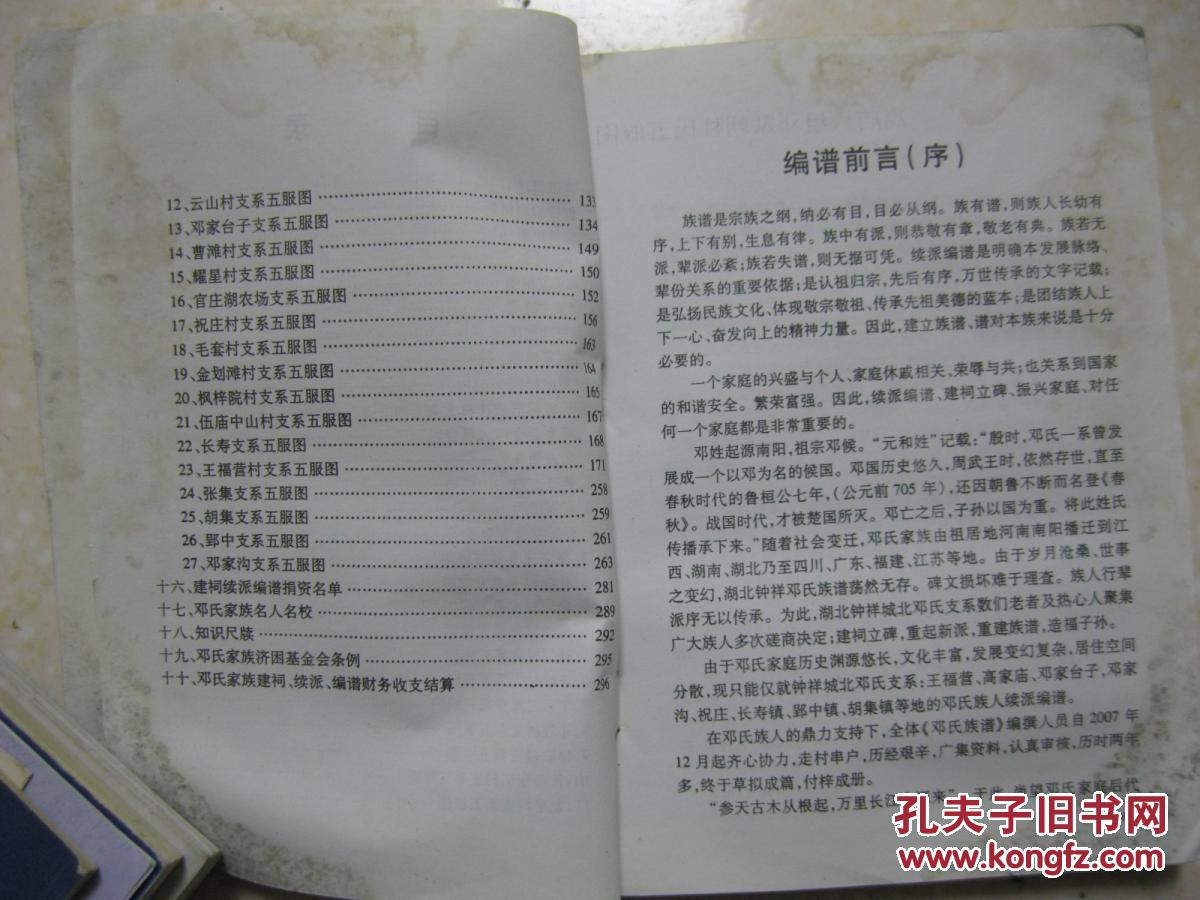 12、云山村支系五服图 133
13、邓家台子支系五服图 134
14、曹滩村支系五服图 149
15、耀星村支系五服图 150
16、官庄湖农场支系五服图 152
17、祝庄村支系五服图 156
18、毛套村支系五服图 163
19、金划滩村支系五服图 164
20、枫梓院村支系五服图 165
21、伍庙中山村支系五服图 167
22、长寿支系五服图 168
23、王福营村支系五服图 171
24、张集支系五服图 258
25、胡集支系五服图 259
26、郢中支系五服图 261
27、邓家沟支系五服图 263
十六、建祠续派编谱捐资名单 281
十七、邓氏家族名人名校 289
十八、知识尺牍 292
十九、邓氏家族济困基金会条例 295
十十、邓氏家族建祠、续派、编谱财务收支结算 296
编谱前言（序）
族谱是宗族之纲，纳必有目，目必从纲。族有谱，则族人长幼有
序，上下有别，生息有律。族中有派，则恭敬有章，敬老有典。族若无
派，辈派必紊；族若失谱，则无据可凭。续派编谱是明确本发展脉络、
辈份关系的重要依据；是认祖归宗，先后有序，万世传承的文字记载；
是弘扬民族文化、体现敬宗敬祖、传承先祖美德的蓝本；是团结族人上
下一心、奋发向上的精神力量。因此，建立族谱、谱对本族来说是十分
必要的。
一个家庭的兴盛与个人、家庭休戚相关、荣辱与共；也关系到国家
的和谐安全。繁荣富强。因此，续派编谱、建祠立碑、振兴家庭、对任
何一个家庭都是非常重要的。
邓姓起源南阳，祖宗邓候。“元和姓”记载：“殷时，邓氏一系曾发
展成一个以邓为名的候国。邓国历史悠久，周武王时，依然存世，直至
春秋时代的鲁桓公七年，（公元前705年），还因朝鲁不断而名登《春
秋》。战国时代，才被楚国所灭。邓亡之后，子孙以国为重。将此姓氏
传播承下来。”随着社会变迁，邓氏家族由祖居地河南南阳播迁到江
西、湖南、湖北乃至四川、广东、福建、江苏等地。由于岁月沧桑、世事
之变幻，湖北钟祥邓氏族谱荡然无存。碑文损坏难于理查。族人行辈
派序无以传承。为此，湖北钟祥城北邓氏支系数们老者及热心人聚集
广大族人多次磋商决定；建祠立碑，重起新派，重建族谱，造福子孙。
由于邓氏家庭历史渊源悠长，文化丰富，发展变幻复杂，居住空间
分散，现只能仅就钟祥城北邓氏支系：王福营、高家庙、邓家台子，邓家
沟、祝庄、长寿镇、郢中镇、胡集镇等地的邓氏族人续派编谱。
在邓氏族人的鼎力支持下，全体《邓氏族谱》编撰人员自2007年
12月起齐心协力，走村串户，历经艰辛，广集资料，认真审核，历时两年
多，终于草拟成篇，付梓成册。
“参天古木从根起，万里长江 来”。于此，尚望邓氏家庭后代
孔夫子旧书网
www.kongfz.com